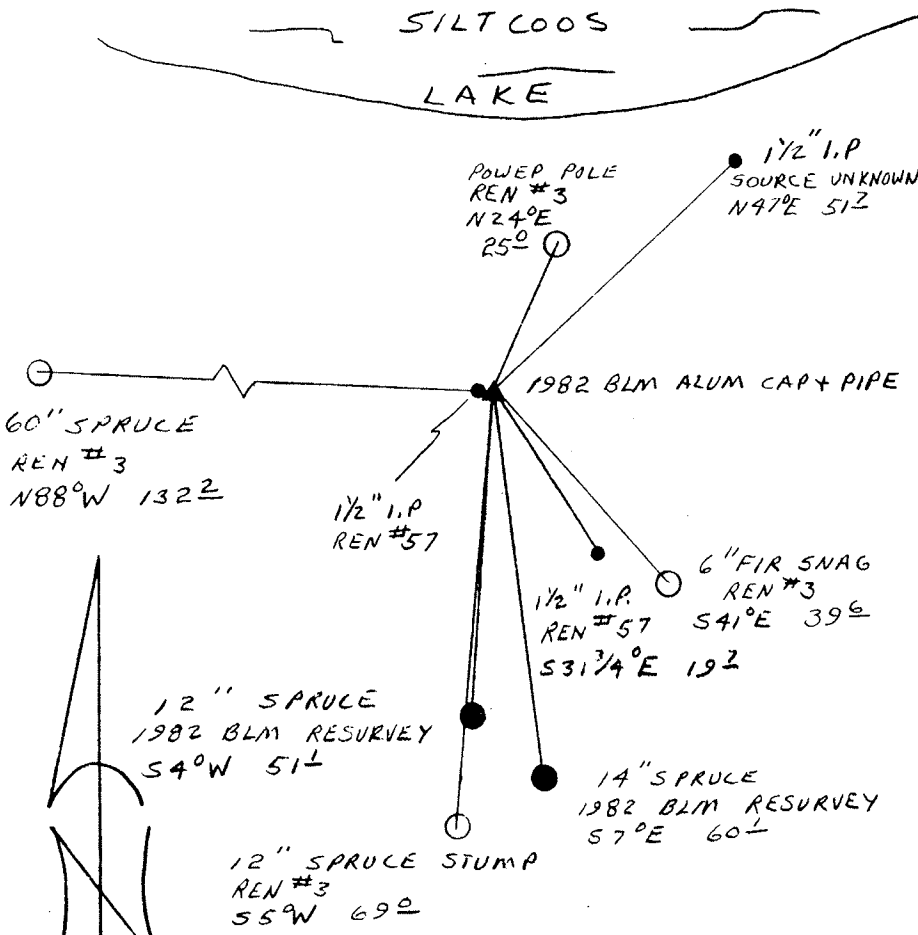 SILTCOOS
LAKE
POWEP POLE
REN #3
N24°E
25⁰
1½" I.P
SOURCE UNKNOWN
N47°E 51⁷
1982 BLM ALUM CAP + PIPE
60" SPRUCE
REN #3
N88°W 132²
1½" I.P
REN #57
1½" I.P.
REN #57
S31¾°E 19⁷
6" FIR SNAG
REN #3
S41°E 39⁶
12" SPRUCE
1982 BLM RESURVEY
S4°W 51¹
14" SPRUCE
1982 BLM RESURVEY
S7°E 60¹
12" SPRUCE STUMP
REN #3
S5°W 69⁰